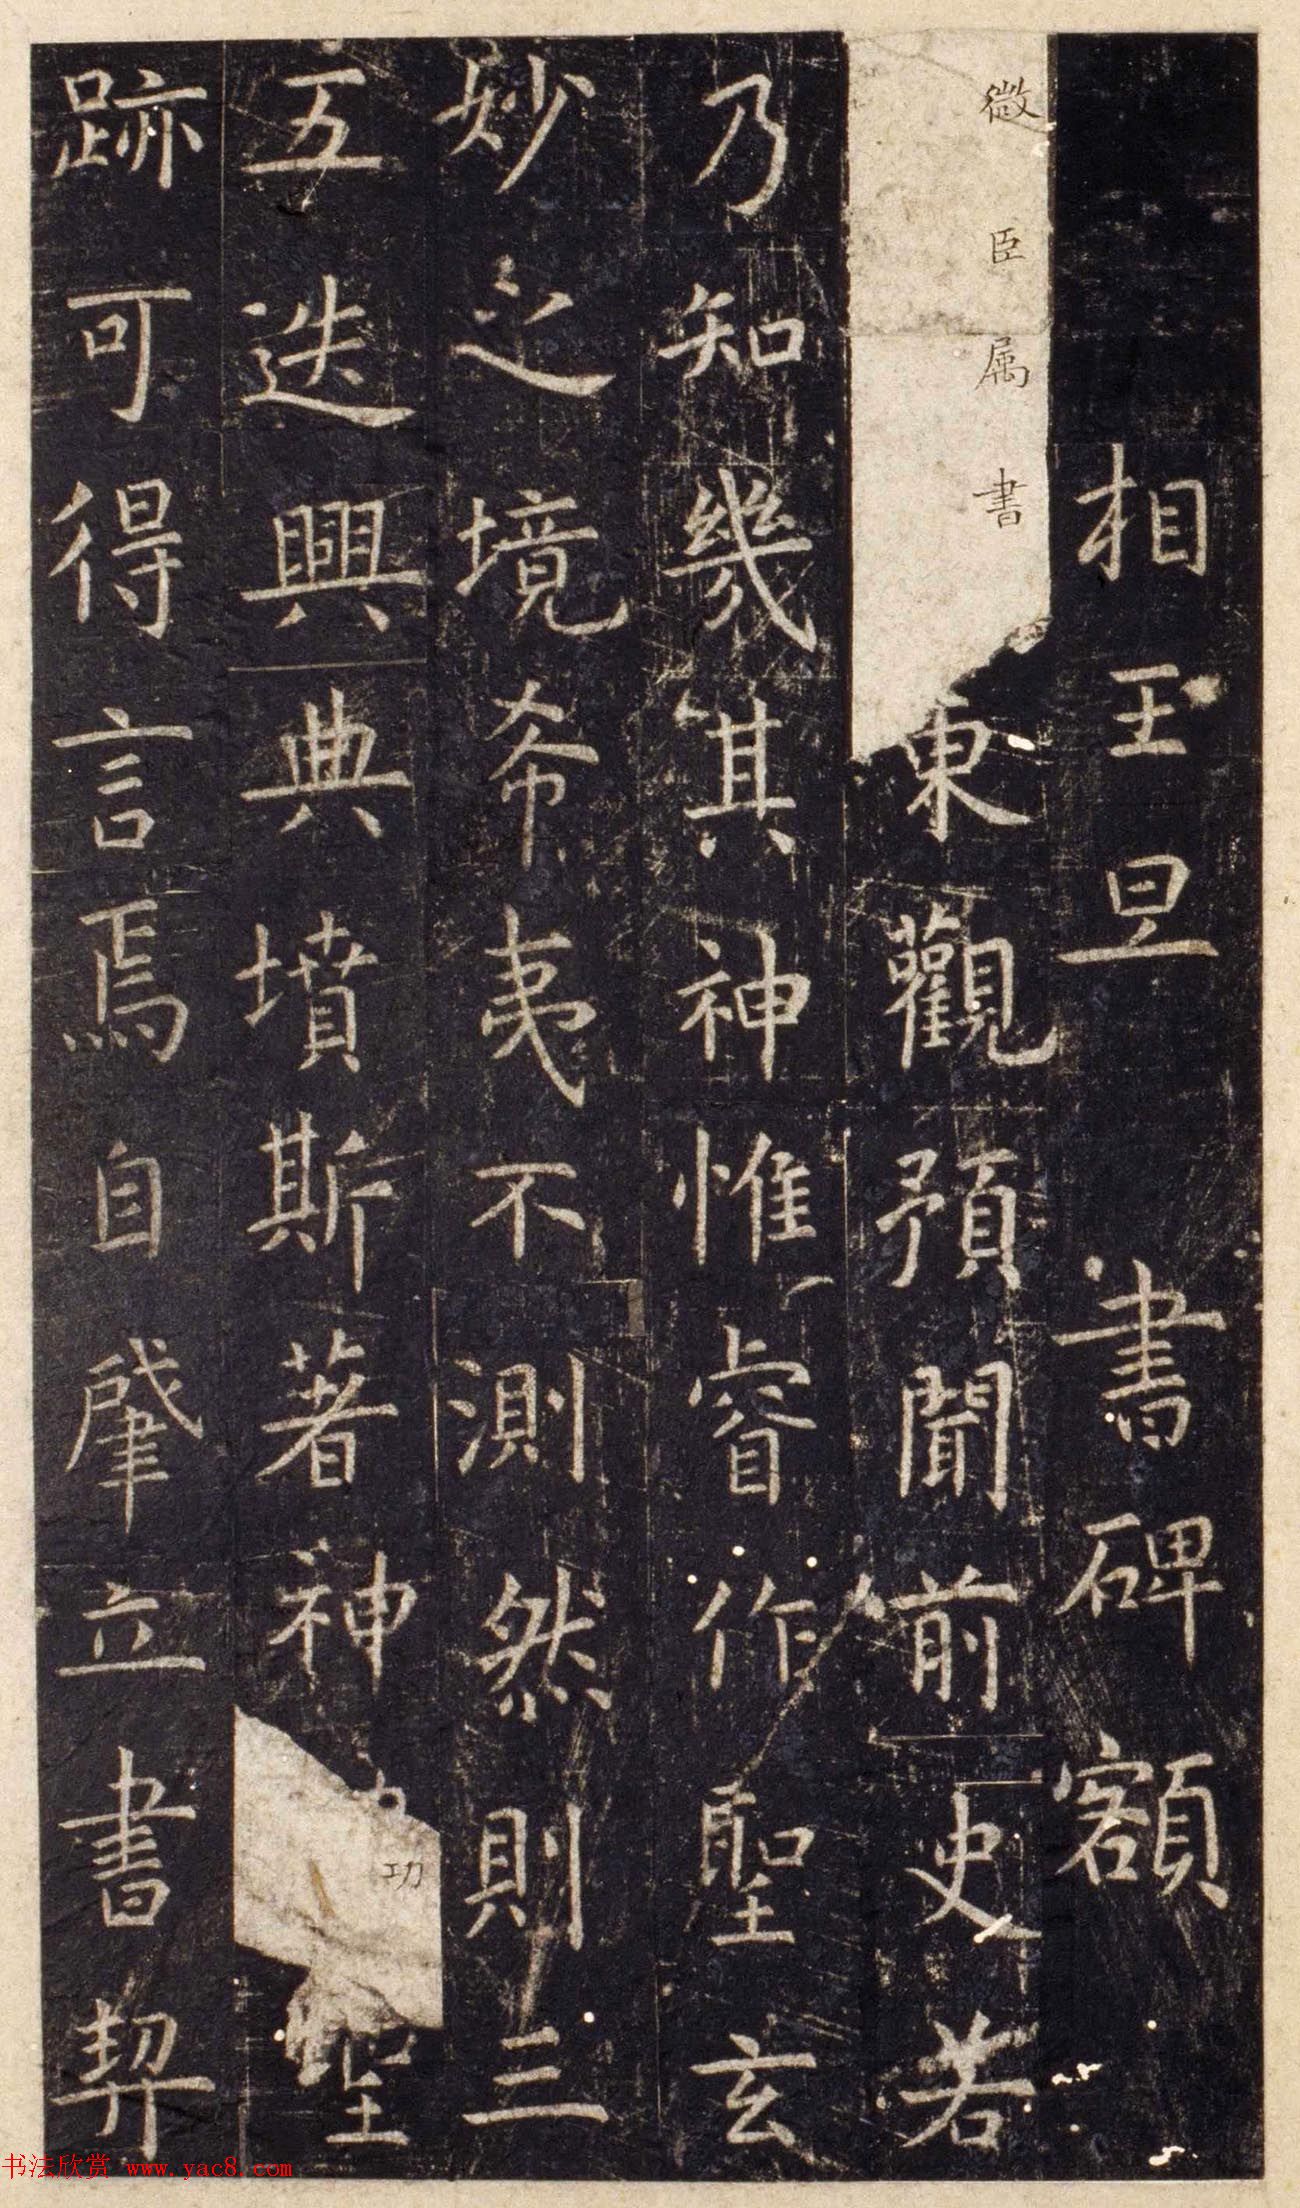 相王旦書碑額
微臣属書東觀預聞前史若
乃知幾其神惟睿作聖玄
妙之境希夷不測然則三
五迭興典墳斯著神功聖
跡可得言焉自肇立書契
书法欣赏 www.yac8.com